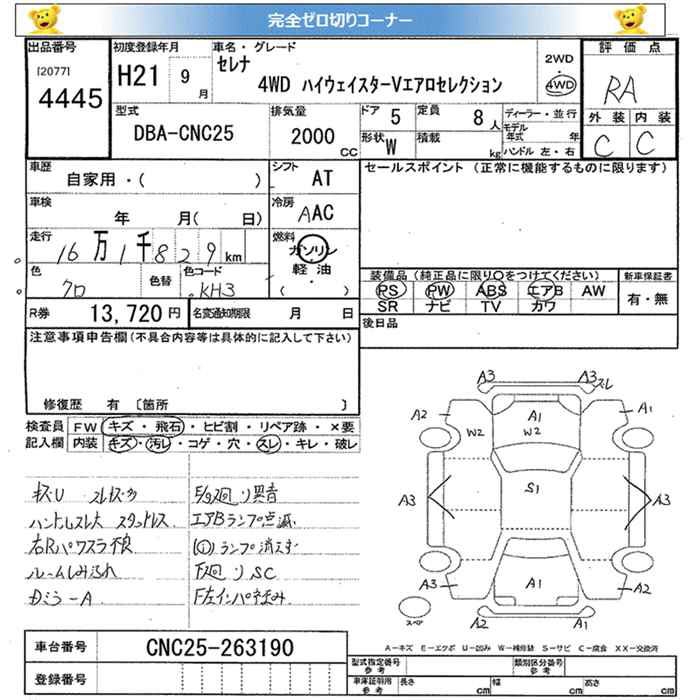 完全ゼロ切りコーナー
出品番号 初度登録年月 車名・グレード 2WD 評価点
[2077] 4445 H21 9月 セレナ 4WD ハイウェイスターVエアロセレクション 4WD RA
型式 排気量 ドア 5 定員 8人 ディーラー・並行 外装 内装
DBA-CNC25 2000CC 形状 W 積載 kg モデル年式 年 ハンドル 左・右 C C
車歴 シフト セールスポイント（正常に機能するものに限ります）
自家用・（ ） AT
車検 冷房
年 月（ 日） AAC
走行 燃料
16万1千829km ガソリン
色 色替 色コード 軽油 装備品（純正品に限り○をつけてください） 新車保証書
クロ KH3 （ ・ ） PS PW ABS エアB AW 有・無
SR ナビ TV カワ
R券 13,720円 名変通知期限 月 日 後日品
注意事項申告欄（不具合内容等は具体的に記入して下さい）
修復歴 有 〔箇所 〕
検査員 FW キズ・飛石・ヒビ割・リペア跡・×要
記入欄 内装 キズ・汚レ・コゲ・穴・スレ・キレ・破レ
キズU スレキズ多 F/9廻り異音
ハンドルスレ大 スタッドレス エアBランプ点滅
右Rパワスラ不良 (!)ランプ消えず
ルームしみ汚れ F廻りSC
DミラーA F左インパネ歪み
A3 A3 スレ
A2 A1 A1
W2 W2
A3 S1 A3
A3 A1 A2
スペア A2 A1
A－キズ E－エクボ U－凹み W－補修跡 S－サビ C－腐食 XX－交換済
車台番号 CNC25-263190 型式指定番号 参考 類別区分番号 参考
登録番号 車庫証明用 参考 長さ cm 幅 cm 高さ cm